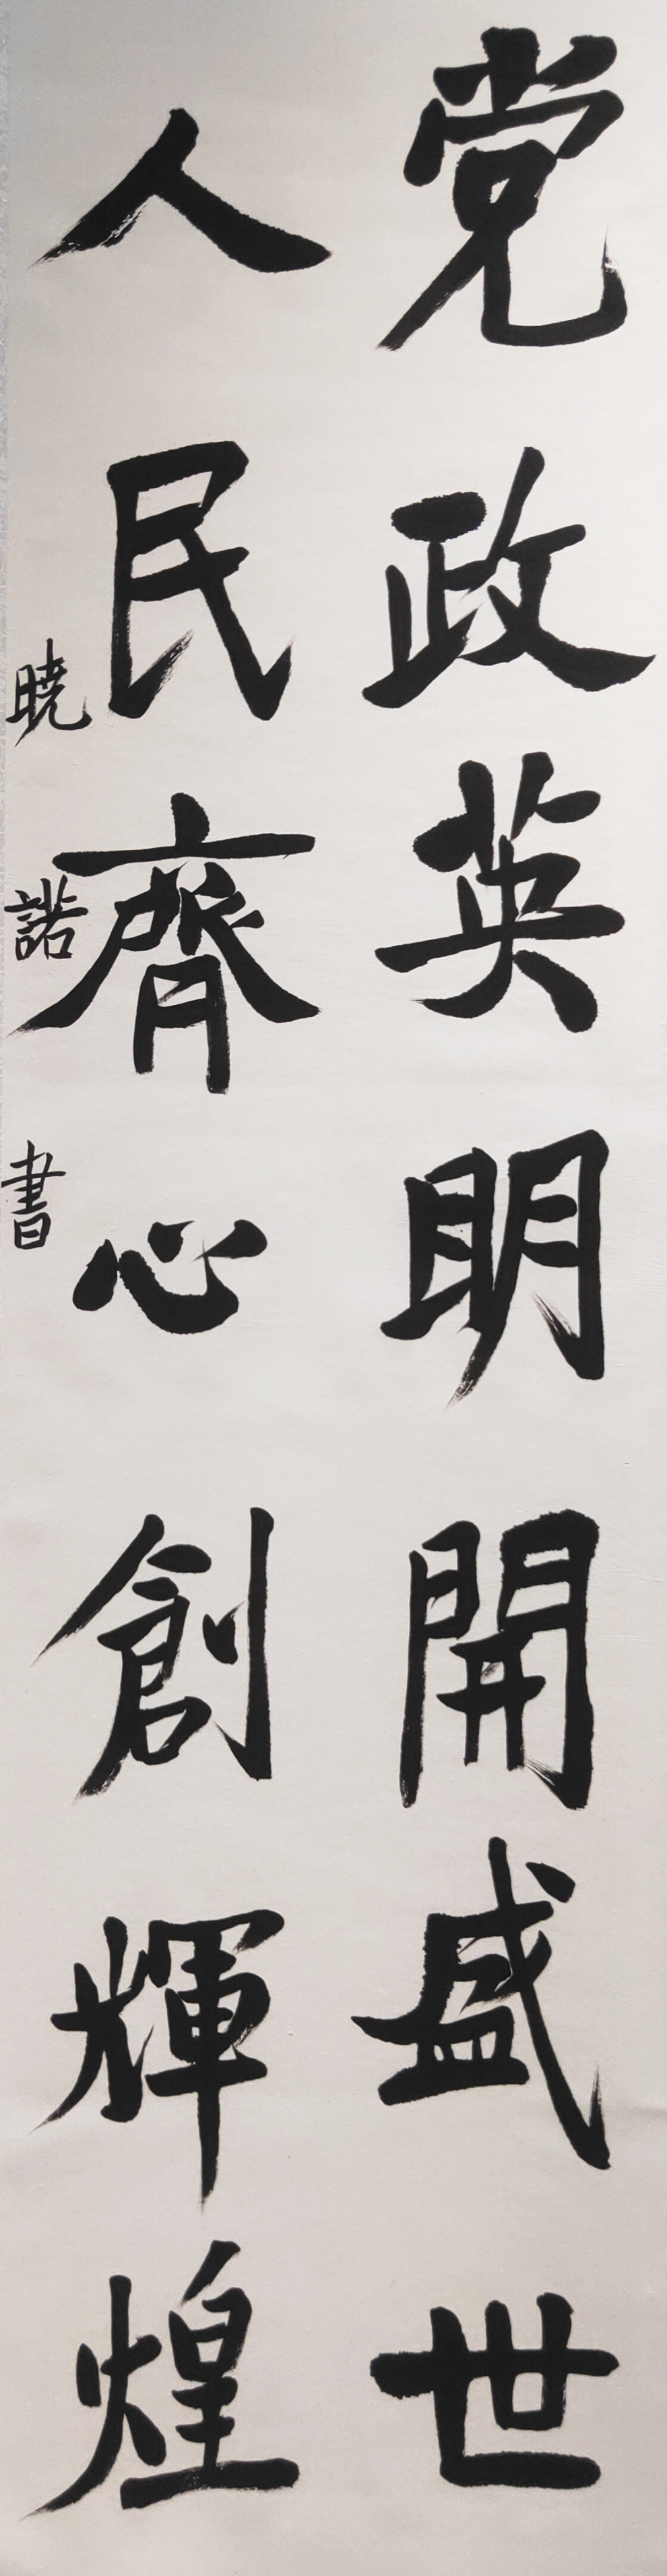 党政英明開盛世
人民齊心創輝煌
曉諾書